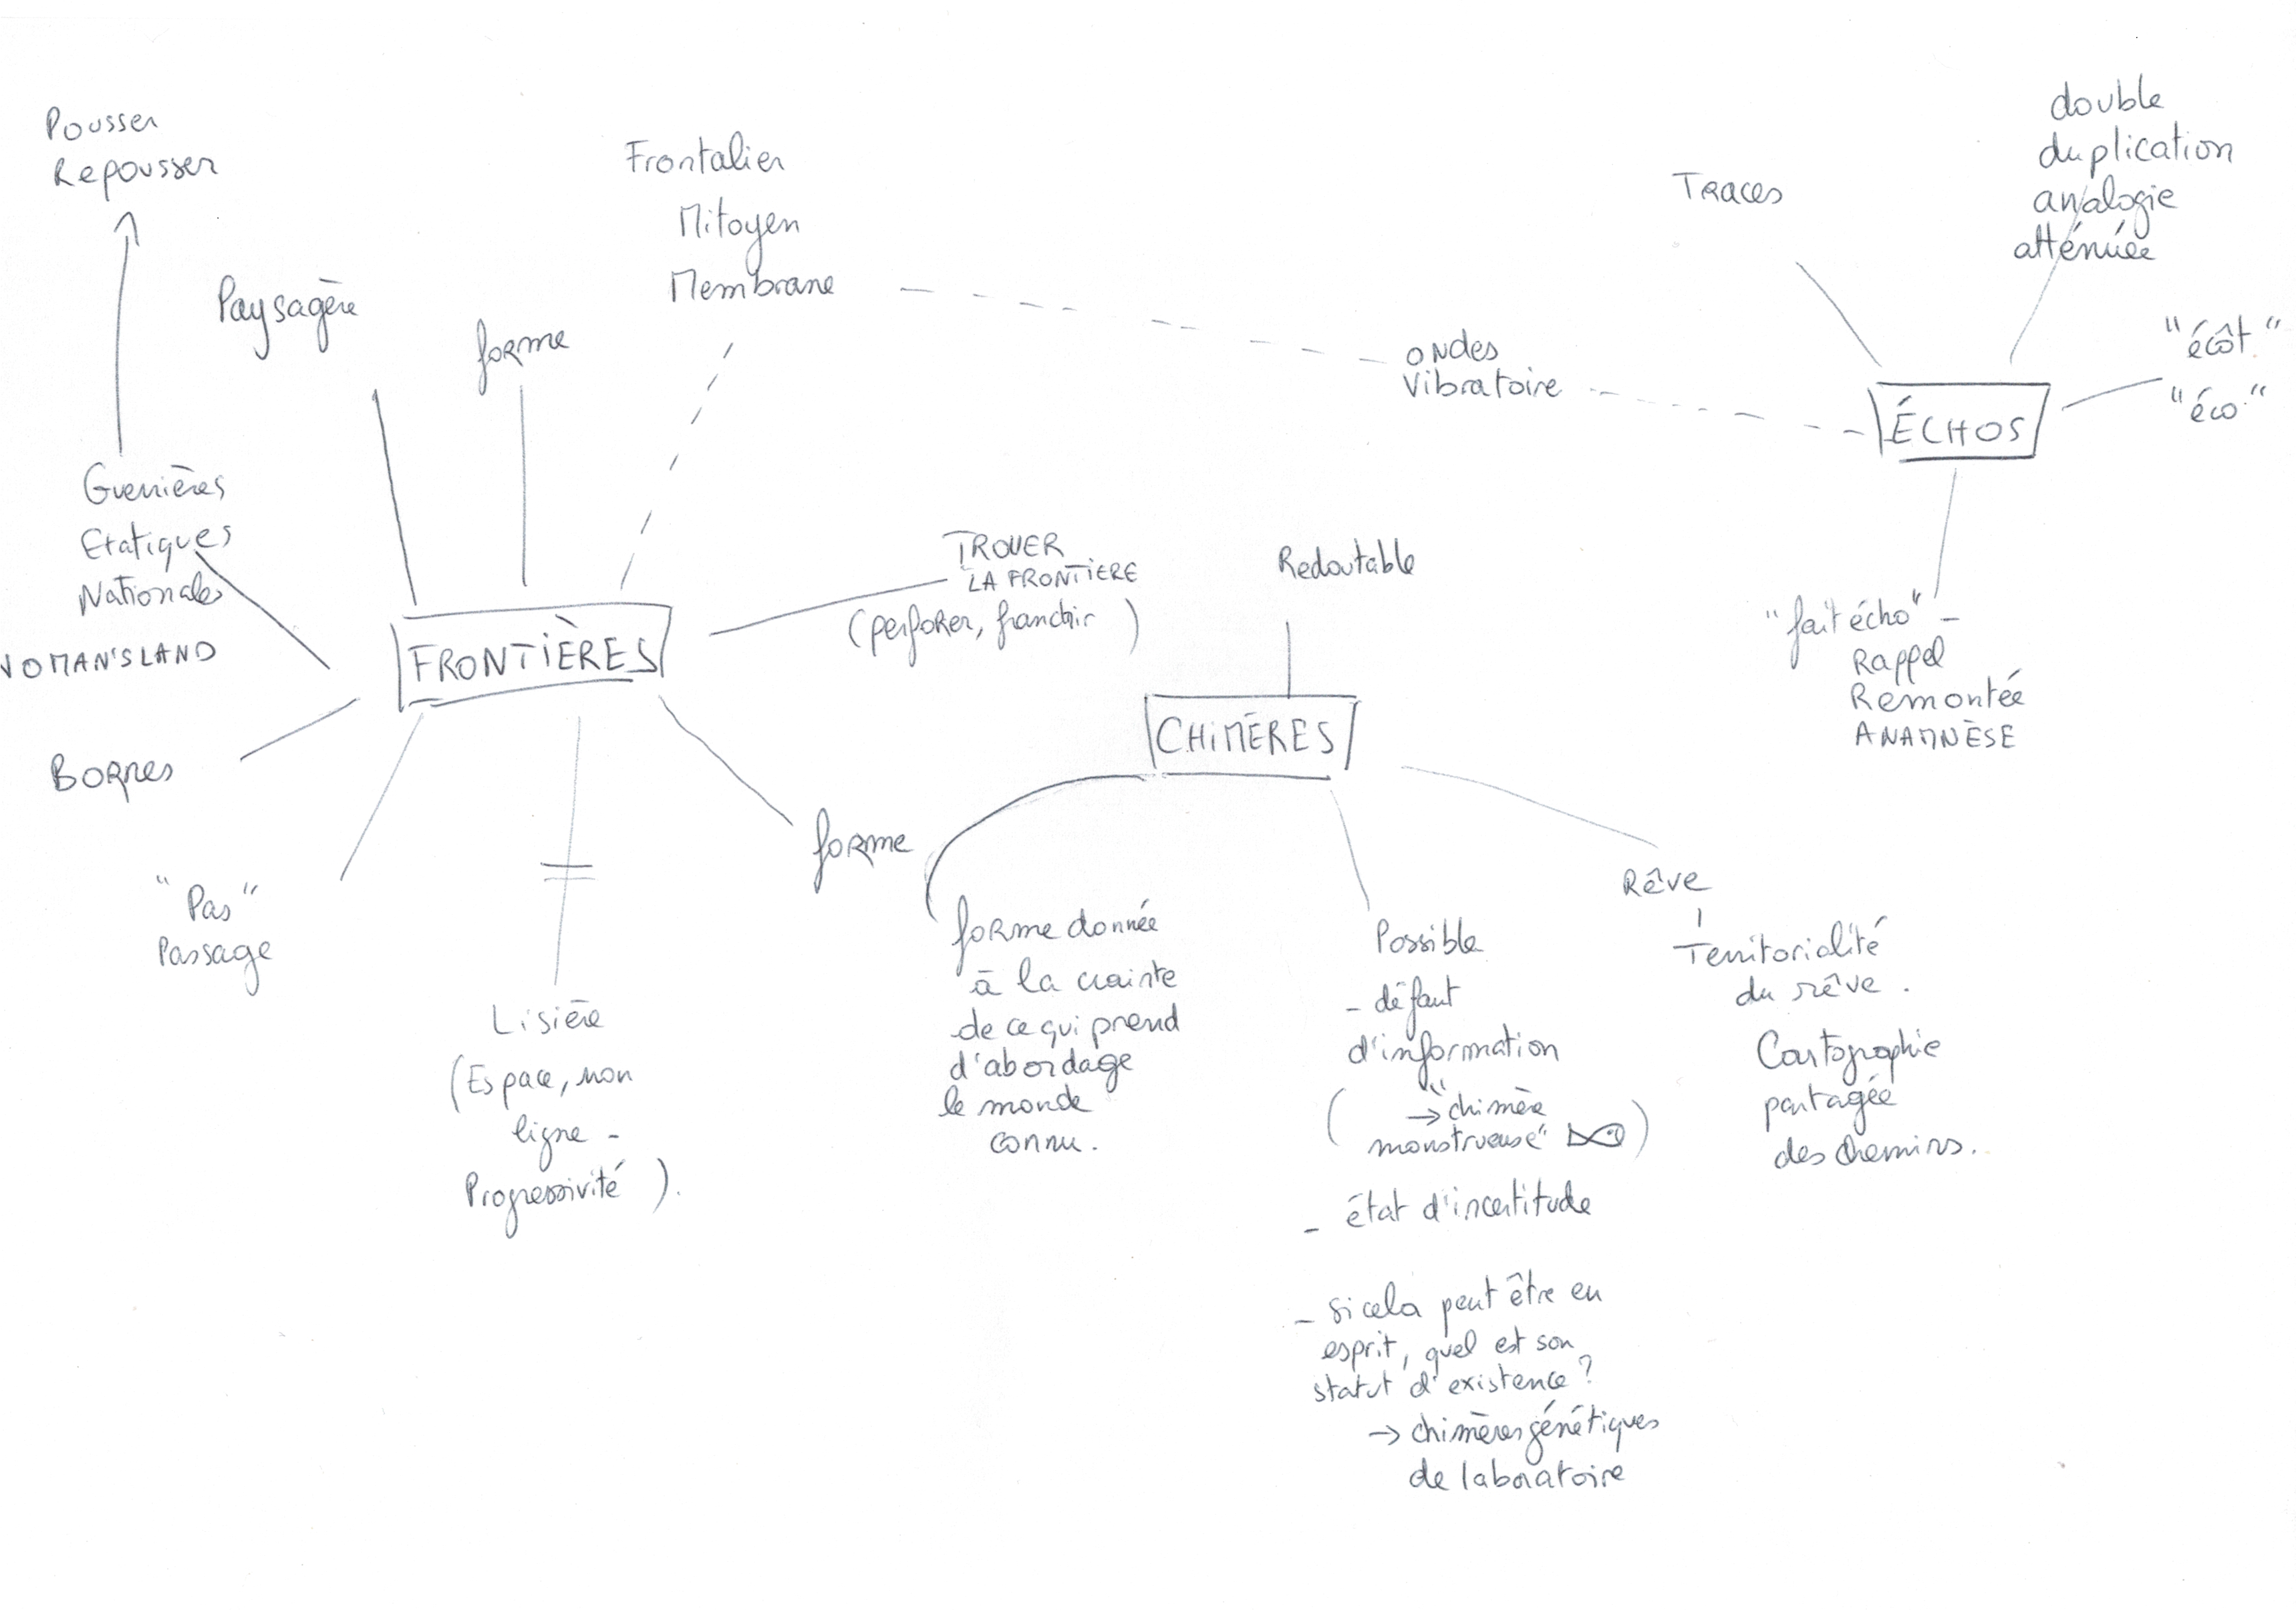 Pousser
Repousser
Paysagère
forme
Frontalier
Mitoyen
Membrane
Guerrières
Etatiques
Nationales
NOMAN'SLAND
Bornes
"Pas"
Passage
FRONTIÈRES
TROUER
LA FRONTIERE
(perforer, franchir)
forme
Lisière
(Espace, non
ligne -
Progressivité).
ondes
Vibratoire
Traces
double
duplication
analogie
atténuée
ÉCHOS
"écôt"
"éco"
"fait écho" -
Rappel
Remontée
ANAMNÈSE
Redoutable
CHIMÈRES
forme donnée
à la crainte
de ce qui prend
d'abordage
le monde
connu.
Possible
- défaut
d'information
( → "chimère
monstrueuse" )
- état d'incertitude
- si cela peut être en
esprit, quel est son
statut d'existence ?
→ chimères génétiques
de laboratoire
Rêve
Territorialité
du rêve.
Cartographie
partagée
des chemins.